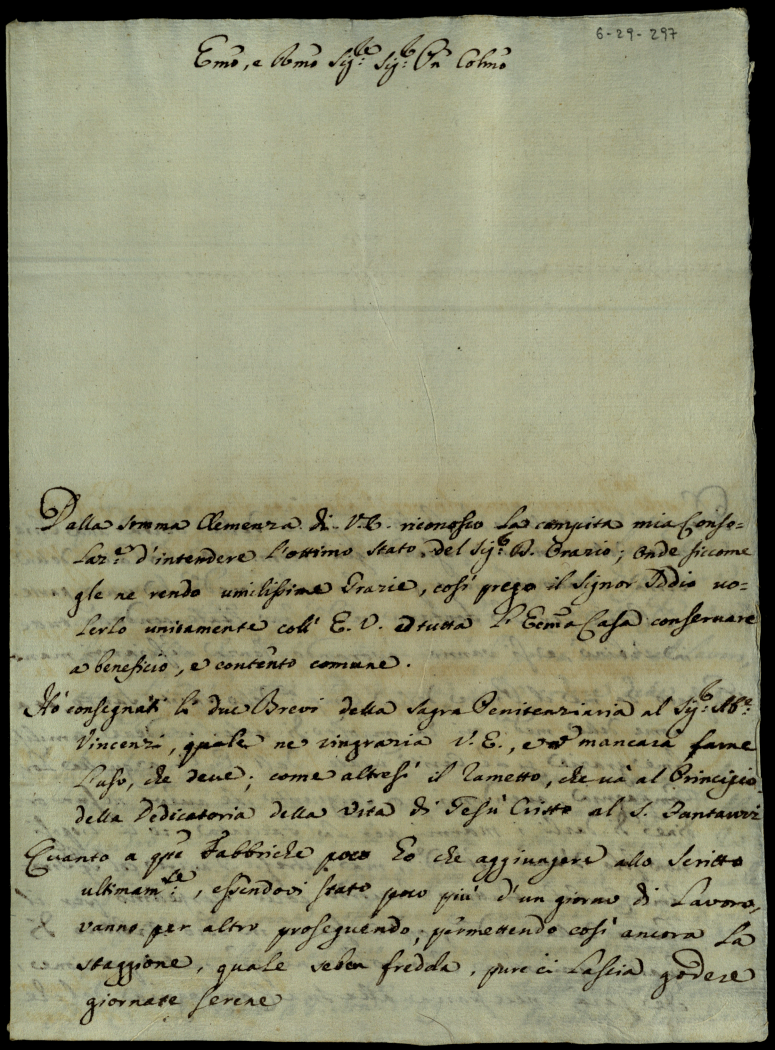 6-29-297
Emo, e Rmo Sig.re Sig.r Pñ Colmo
Dalla somma Clemenza di V.E. riconosco la compita mia Conso=
laz.ne d'intendere l'ottimo stato del Sig.r D. Orazio; onde siccome
gle ne rendo umilissime Grazie, così prego il Signor Iddio vo=
lerlo unitamente coll' E.V. e tutta l'Ecma Casa conservare
a beneficio, e contento comune.
Hò consegnati li due Brevi della Sagra Penitenziaria al Sig.r Ab.e
Vincenzi, quale ne ringrazia V.E., e mancarà farne
l'uso, che deve; come altresì il Rametto, che và al Principio
della Dedicatoria della Vita di Gesù Cristo al S.
Quanto a qste Fabbriche poco Ho che aggiungere allo scritto
ultimam.te, essendovi stato poco più d'un giorno di Lavoro,
vanno per altro proseguendo, permettendo così ancora la
staggione, quale seben fredda, pure ci lascia godere
giornate serene